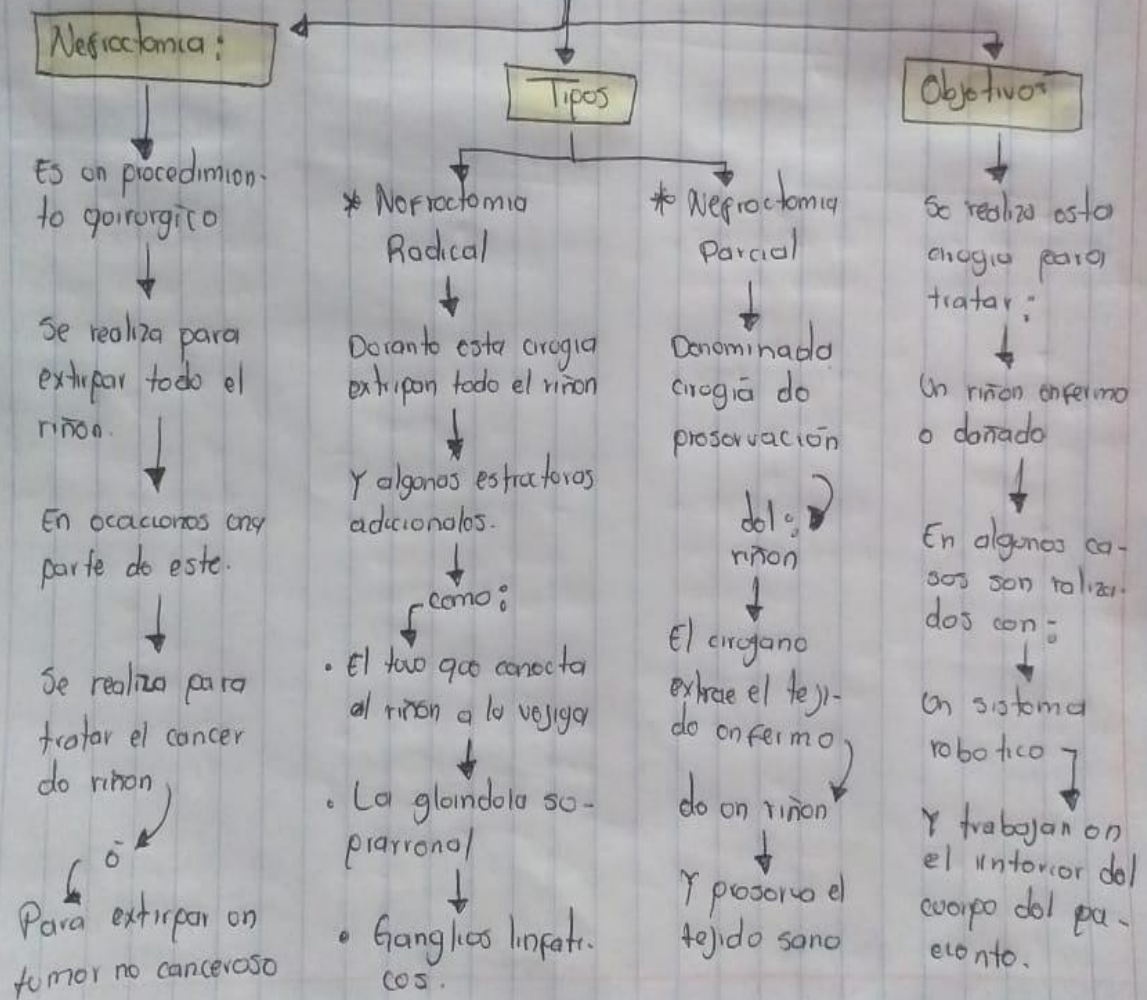 Nefrectomia:
Es un procedimien-
to quirurgico
Se realiza para
extirpar todo el
riñon.
En ocaciones una
parte de este.
Se realiza para
tratar el cancer
de riñon
ó
Para extirpar un
tumor no canceroso
Tipos
* Nefrectomia
Radical
Durante esta cirugia
extripan todo el riñon
Y algunas estructuras
adicionales.
como:
• El tuvo que conecta
al riñon a la vejiga
• La glándula su-
prarrenal
• Ganglios linfati-
cos.
* Nefrectomia
Parcial
Denominada
cirugiá de
preservación
del:
riñon
El cirugano
extrae el teji-
do enfermo
de un riñon
Y preserva el
tejido sano
Objetivos
Se realiza esta
cirugia para
tratar:
Un riñon enfermo
o dañado
En algunos ca-
sos son raliza-
dos con:
Un sistema
robotico
Y trabajan en
el iinterior del
cuerpo del pa-
ciente.